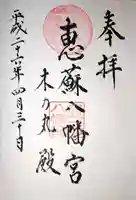 奉拝
恵蘇八幡宮
木乃丸殿
平成二十六年四月三十日